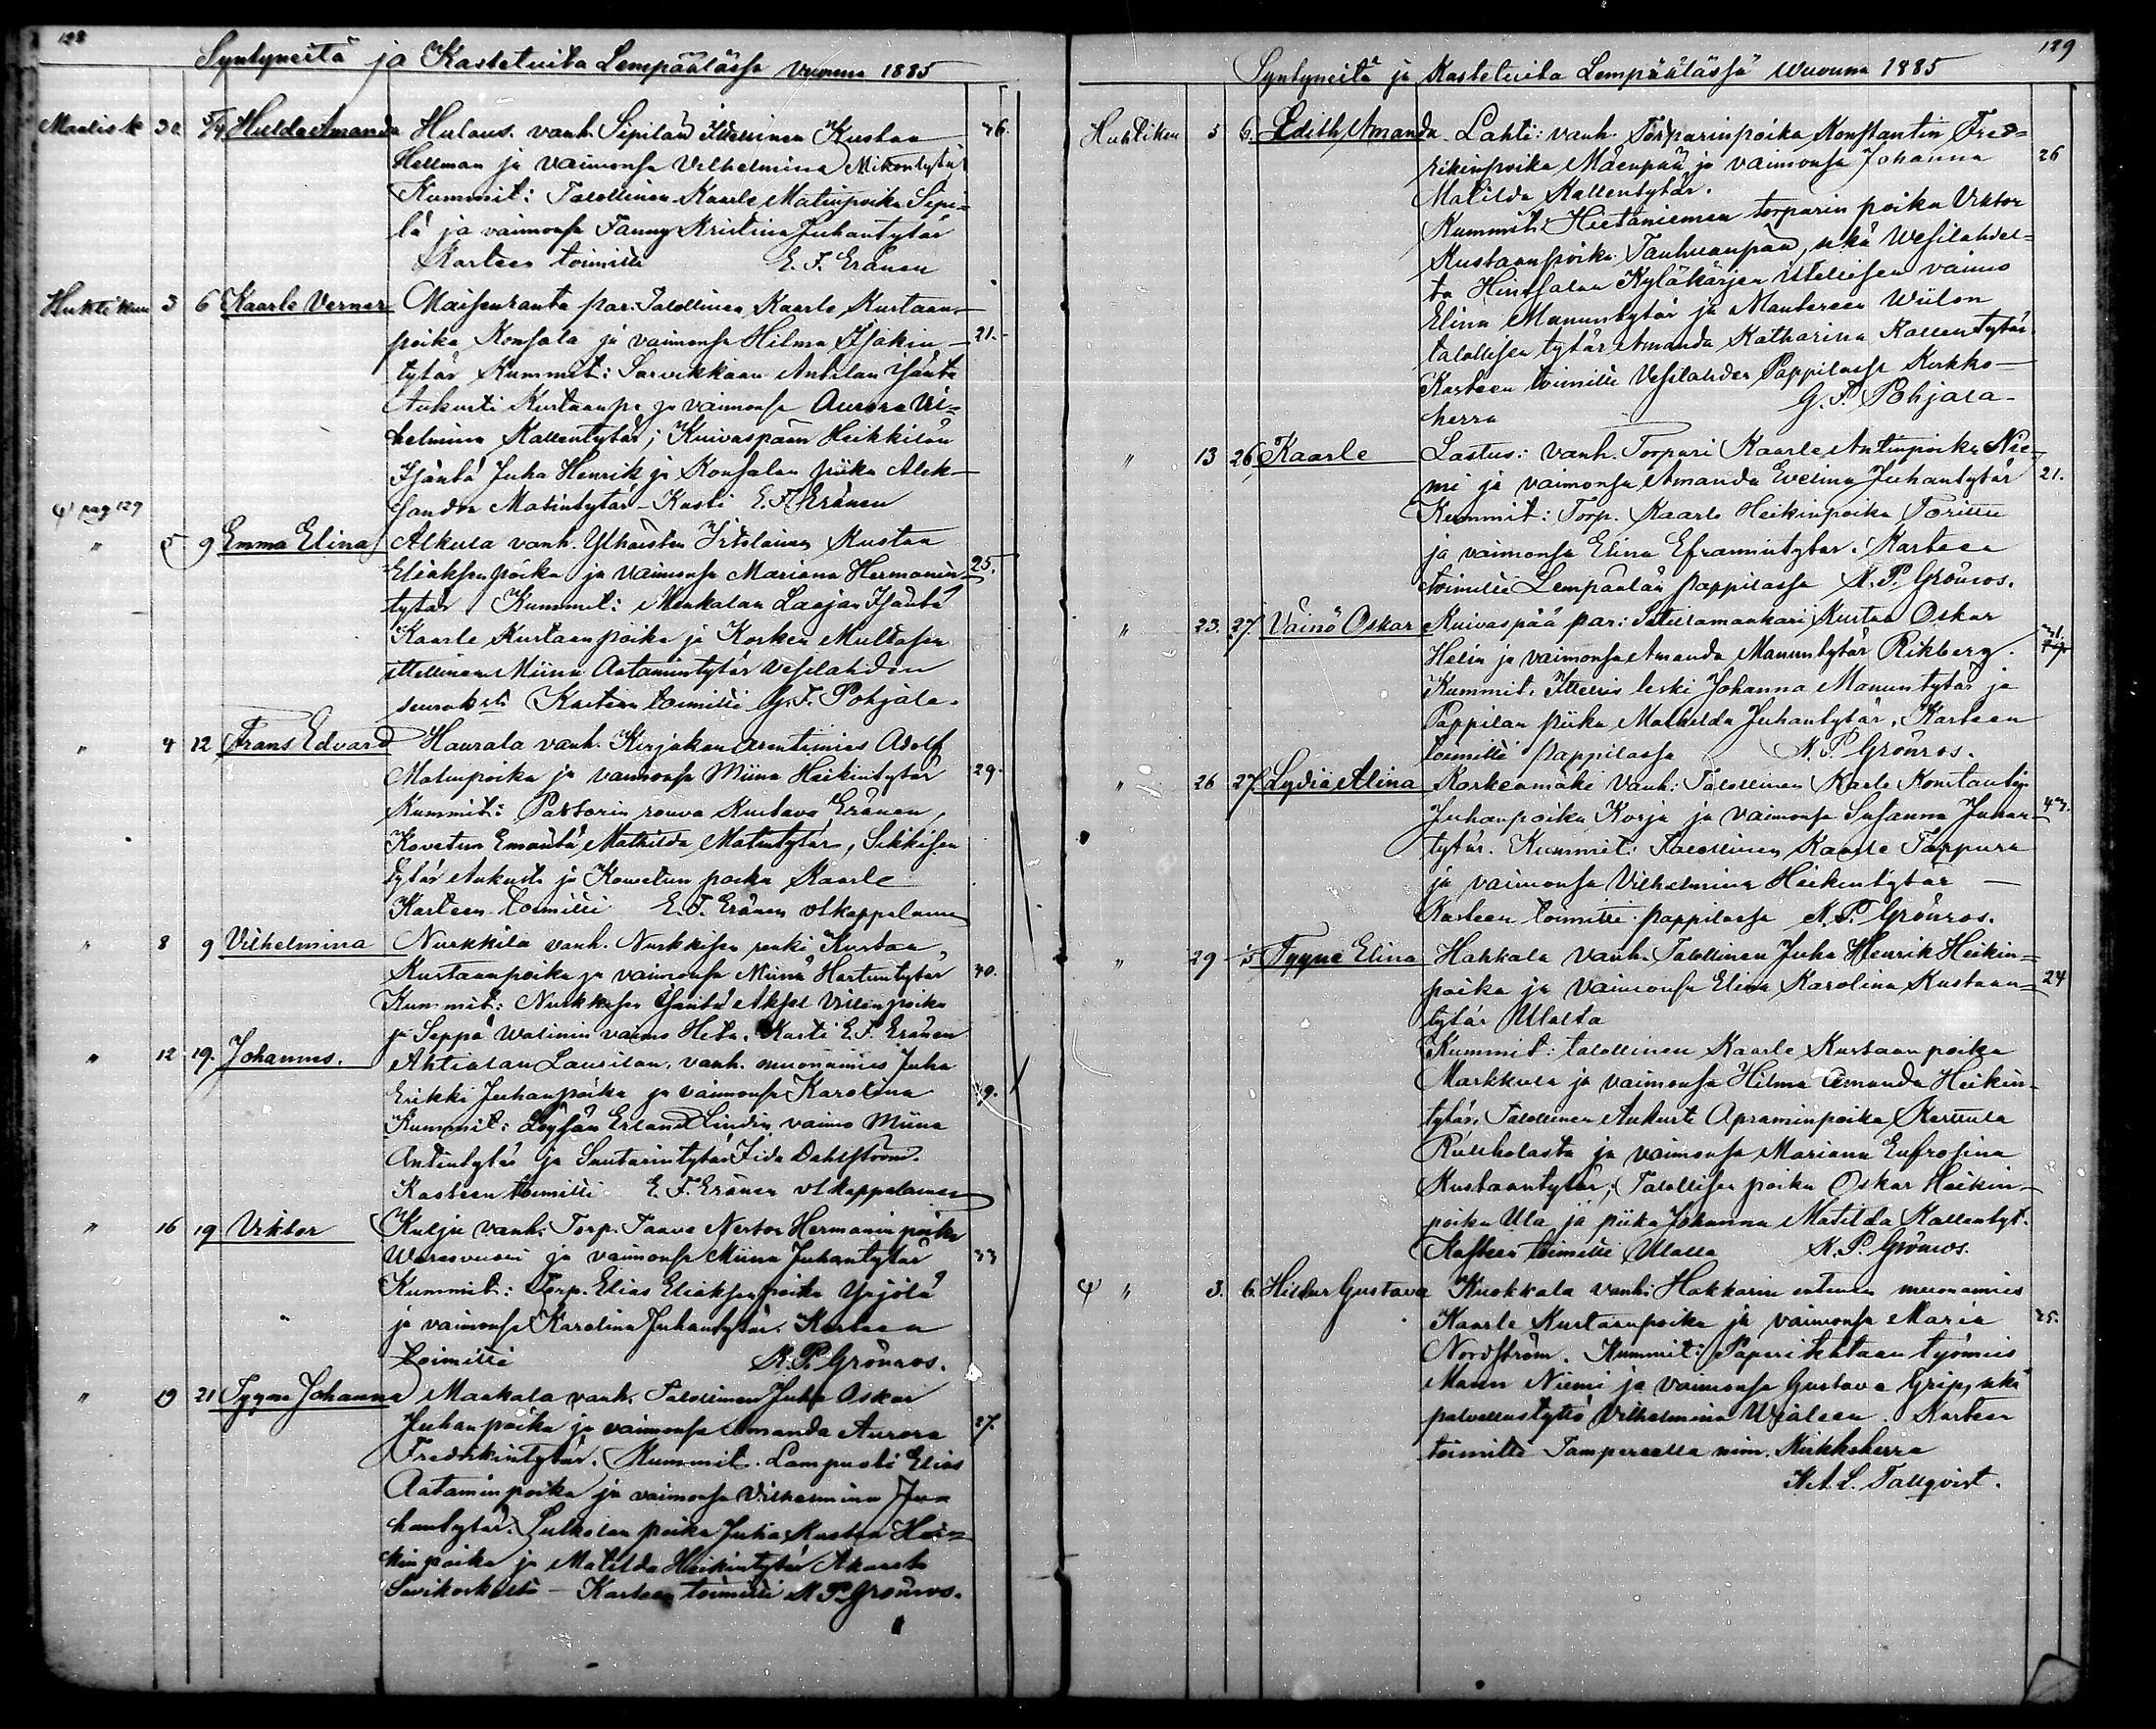 128
Syntyneitä ja Kastetuita Lempäälässä vuonna 1885
Maalisk 30. 5/4 Hulda Amanda Hulaus. vanh. Sipilän Itsellinen Kustaa 46.
Hellman ja vaimonsa Vilhelmina Mikontytär
Kummit: Talollinen Kaarle Matinpoika Sipi=
lä ja vaimonsa Fanny Kristina Juhantytär
Kasteen toimitti E. F. Eränen
Huhtikuu 3 6 Kaarle Verner Maisenranta par: Talollinen Kaarle Kustaan-
poika Konsala ja vaimonsa Hilma Isakin- 21.
tytär Kummit: Sarvikkaan Anttilan Isäntä
Aukusti Kustaanp. ja vaimonsa Aurora Vil=
helmina Kallentytär; Kuivaspään Heikkilän
Isäntä Juha Henrik ja Konsalan piika Alek-
sandra Matintytär - Kasti E. F. Eränen
ψ pag 129
" 5 9 Emma Elina Alkula vanh. Itselainen Kustaa
Eliaksenpoika ja vaimonsa Mariana Hermanin- 25.
tytär Kummit: Menkalan Laajan Isäntä
Kaarle Kustaanpoika ja Kosken Multasen
ittellinen Miina Aatamintytär Vesilahden
seurak:sta Kasteen toimitti G. F. Pohjala.
" 4 12 Frans Edvard Haurala vanh. Kirjakan arentimies Adolf
Matinpoika ja vaimonsa Miina Heikintytär 29.
Kummit: Pastorin rouva Kustava Eränen,
Kovetun Emäntä Mathilda Matintytär, Sikkisen
tytär Aukusta ja Kowetun poika Kaarle
Kasteen toimitti E. F. Eränen vt kappalainen
" 8 9 Vilhelmina Nurkkila vanh. Nurkkisen renki Kustaa
Kustaanpoika ja vaimonsa Miina Hartuntytär 40.
Kummit: Nurkkisen Isäntä Aksel Villenpoika
ja Seppä Walinin vaimo Heta. Kasti E. F. Eränen
" 12 19. Johannes. Ahtialan Lausilan, vanh. muonamies Juha
Erikki Juhanpoika ja vaimonsa Karolina
Kummit: Erland Lindin vaimo Miina
Antintytär ja Suutarintytär Fida Dahlström.
Kasteen toimitti E. F. Eränen vt kappalainen
" 16 19 Viktor Kulju vanh: Torp. Taave Nestor Hermanin poika
Waresvuori ja vaimonsa Miina Juhantytär 33
Kummit: Torp. Elias Eliaksenpoika Yrjölä
ja vaimonsa Karolina Juhantytär. Kasteen
toimitti K. P. Grönros.
" 19 21 Tyyne Johanna Maakala vanh. Talollinen Juho Oskar
Juhanpoika ja vaimonsa Amanda Aurora 27.
Fredrikintytär. Kummit. Lampuoti Elias
Aataminpoika ja vaimonsa Vilhelmina Ju=
hantytär. Sulkolan poika Juha Kustaa Hei=
kinpoika ja Matilda Heikintytär Akaasta
Savikoskelta - Kasteen toimitti K. P. Grönros.
129
Syntyneitä ja Kastetuita Lempäälässä vuonna 1885
Huhtikuu 5 6. Edith Amanda Lahti: vanh. Torparinpoika Konstantin Fred=
rikinpoika Mäenpää ja vaimonsa Johanna 26
Matilda Kallentytär.
Kummit: Hietaniemen torparin poika Viktor
Kustaanpoika Tanhuanpää, sekä Wesilahdel=
ta Hinsalan Kyläkärjen ittellisen vaimo
Elina Manuntytär ja Mantereen Wiilon
talollisen tytär Amanda Katharina Kallentytär.
Kasteen toimitti Vesilahden Pappilassa Kirkko-
herra G. F. Pohjala.
" 13 26 Kaarle Lastus: vanh. Torpari Kaarle Antinpoika Nie-
mi ja vaimonsa Amanda Evelina Juhantytär 21.
Kummit: Torp. Kaarlo Heikinpoika
ja vaimonsa Elina Eframintytär. Kasteen
toimitti Lempäälän pappilassa K. P. Grönros.
" 23. 27. Väinö Oskar Kuivaspää par: Kustaa Oskar
Helin ja vaimonsa Amanda Manuntytär Rikberg.
Kummit. Ittellis leski Johanna Manuntytär ja
Pappilan piika Mathilda Juhantytär. Kasteen
toimitti pappilassa K. P. Grönros.
" 26 27. Lydia Alina Korkeamäki vanh: Talollinen Karle Konstantin
Juhanpoika Korja ja vaimonsa Susanna Juhan- 43.
tytär. Kummit: Talollinen Kaarle Tappura
ja vaimonsa Vilhelmina Heikintytär -
Kasteen toimitti pappilassa K. P. Grönros.
" 29 Tyyne Elina Hahkala vanh. Talollinen Juha Henrik Heikin=
poika ja vaimonsa Elina Karolina Kustaan= 24
tytär Ulalta
Kummit: talollinen Kaarle Kustaan poika
Markkula ja vaimonsa Hilma Amanda Heikin-
tytär, Talollinen Aukusti Apraminpoika Kerttula
ja vaimonsa Mariana Eufrosina
Kustaantytär; Talollisen poika Oskar Heikin-
poika Ula ja piika Johanna Matilda Kallentyt.
Kasteen toimitti Ulalla K. P. Grönros.
ψ " 3. 6. Hildur Gustava Kuokkala vanh: Hakkarin entinen muonamies
Kaarle Kustaanpoika ja vaimonsa Maria 25.
Nordström. Kummit: Paperitehtaan työmies
Niemi ja vaimonsa Gustava Grip, sekä
palvellustyttö Vilhelmina Wialeen. Kasteen
toimitti Tampereella nim. Kirkkoherra
K. A. L. Tallqvist.